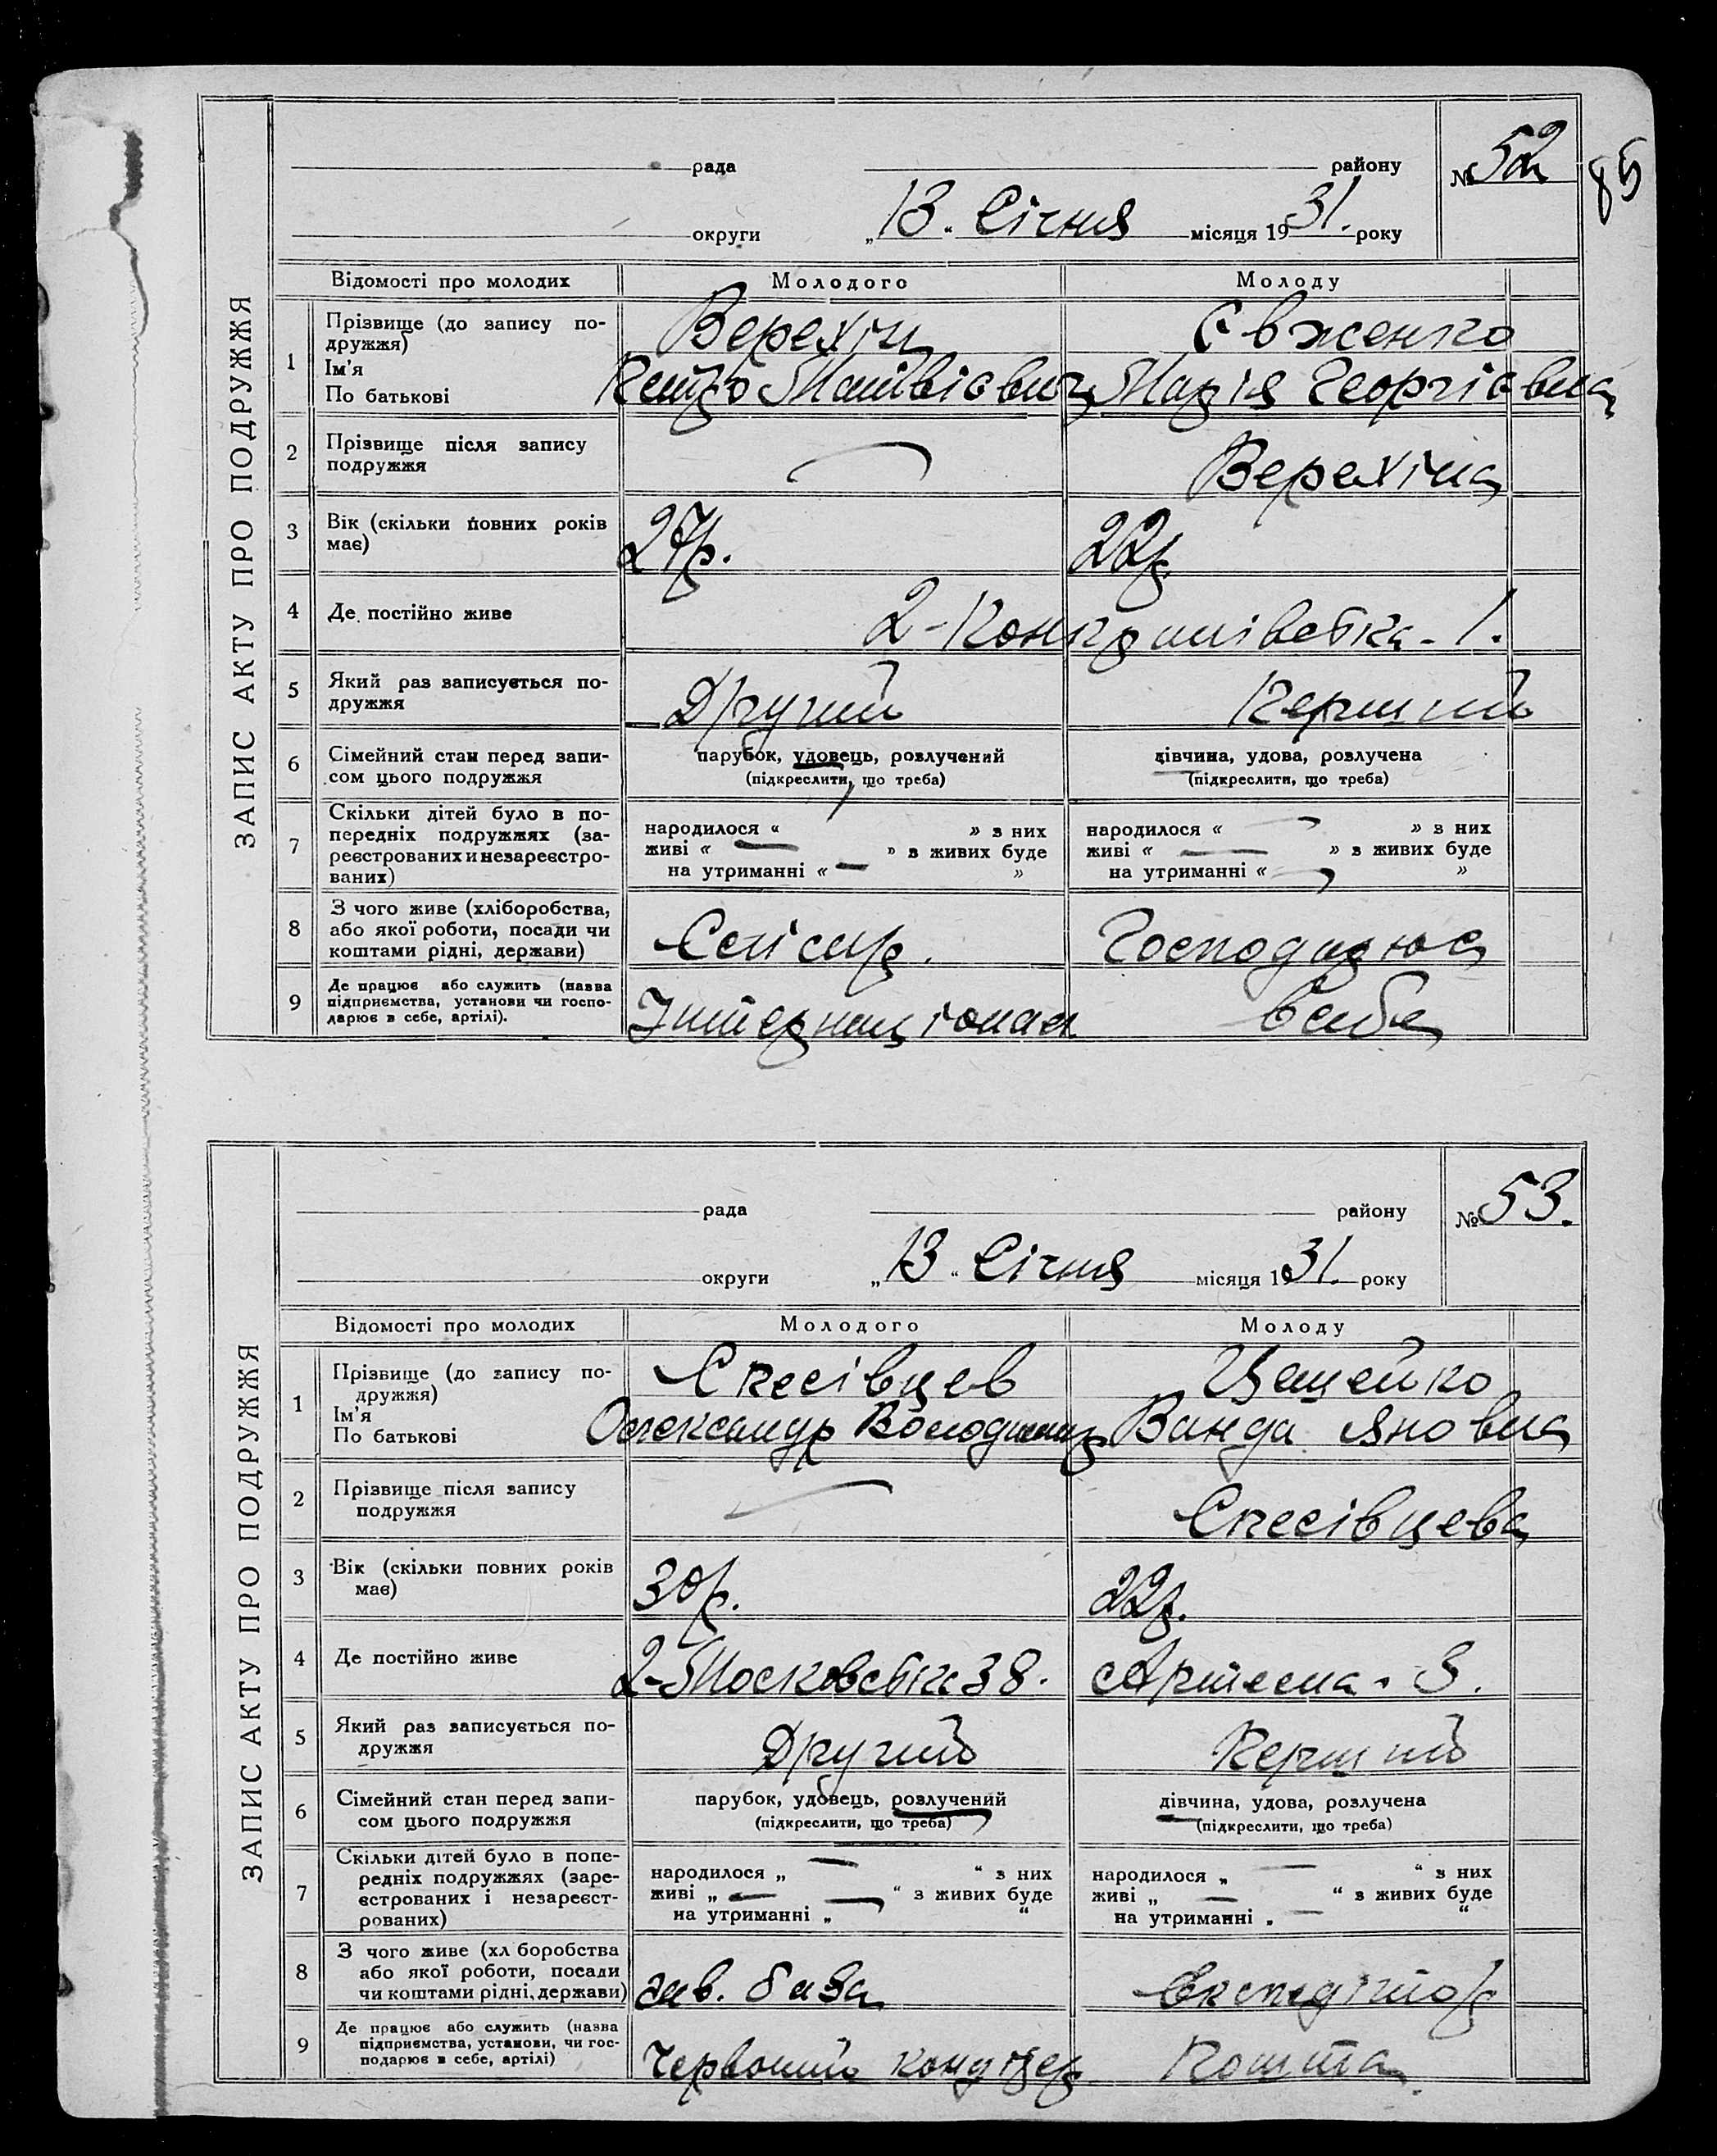 85
ЗАПИС АКТУ ПРО ПОДРУЖЖЯ
рада району № 52
округи „13." Січня місяця 1931. року
Відомості про молодих Молодого Молоду
1 Прізвище (до запису по- Верехін Євженко
дружжя)
Ім'я Петро Матвієвич Марія Георгієвна
По батькові
2 Прізвище після запису Верехіна
подружжя
3 Вік (скільки повних років 27р. 22р.
має)
4 Де постійно живе 2-Кон - 1.
5 Який раз записується по- Другий Перший
дружжя
6 Сімейний стан перед запи- парубок, удовець, розлучений дівчина, удова, розлучена
сом цього подружжя (підкреслити, що треба) (підкреслити, що треба)
7 Скільки дітей було в по-
передніх подружжях (за- народилося « — » з них народилося « — » з них
реєстрованих и незареєстро- живі « — » з живих буде живі « — » з живих буде
ваних) на утриманні « — » на утриманні « — »
8 З чого живе (хліборобства,
або якої роботи, посади чи Господарює
коштами рідні, держави)
9 Де працює або служить (назва
підприємства, установи чи госпо- Інтернаціонал в себе
дарює в себе, артілі).
ЗАПИС АКТУ ПРО ПОДРУЖЖЯ
рада району № 53.
округи „13" Січня місяця 1931. року
Відомості про молодих Молодого Молоду
1 Прізвище (до запису по- Спесівцев
дружжя)
Ім'я Олександр Володимир Ванда Яновна
По батькові
2 Прізвище після запису Спесівцева
подружжя
3 Вік (скільки повних років 30р. 22р.
має)
4 Де постійно живе 2-Московська 38. Артема - 3.
5 Який раз записується по- Другий Перший
дружжя
6 Сімейний стан перед запи- парубок, удовець, розлучений дівчина, удова, розлучена
сом цього подружжя (підкреслити, що треба) (підкреслити, що треба)
7 Скільки дітей було в попе-
редніх подружжях (заре- народилося „ — “ з них народилося „ — “ з них
єстрованих і незареєст- живі „ — “ з живих буде живі „ — “ з живих буде
рованих) на утриманні „ — “ на утриманні „ — “
8 З чого живе (хл боробства
або якої роботи, посади зав. база Експедітор
чи коштами рідні, держави)
9 Де працює або служить (назва
підприємства, установи, чи гос- Червоний кондітер Пошта
подарює в себе, артілі)